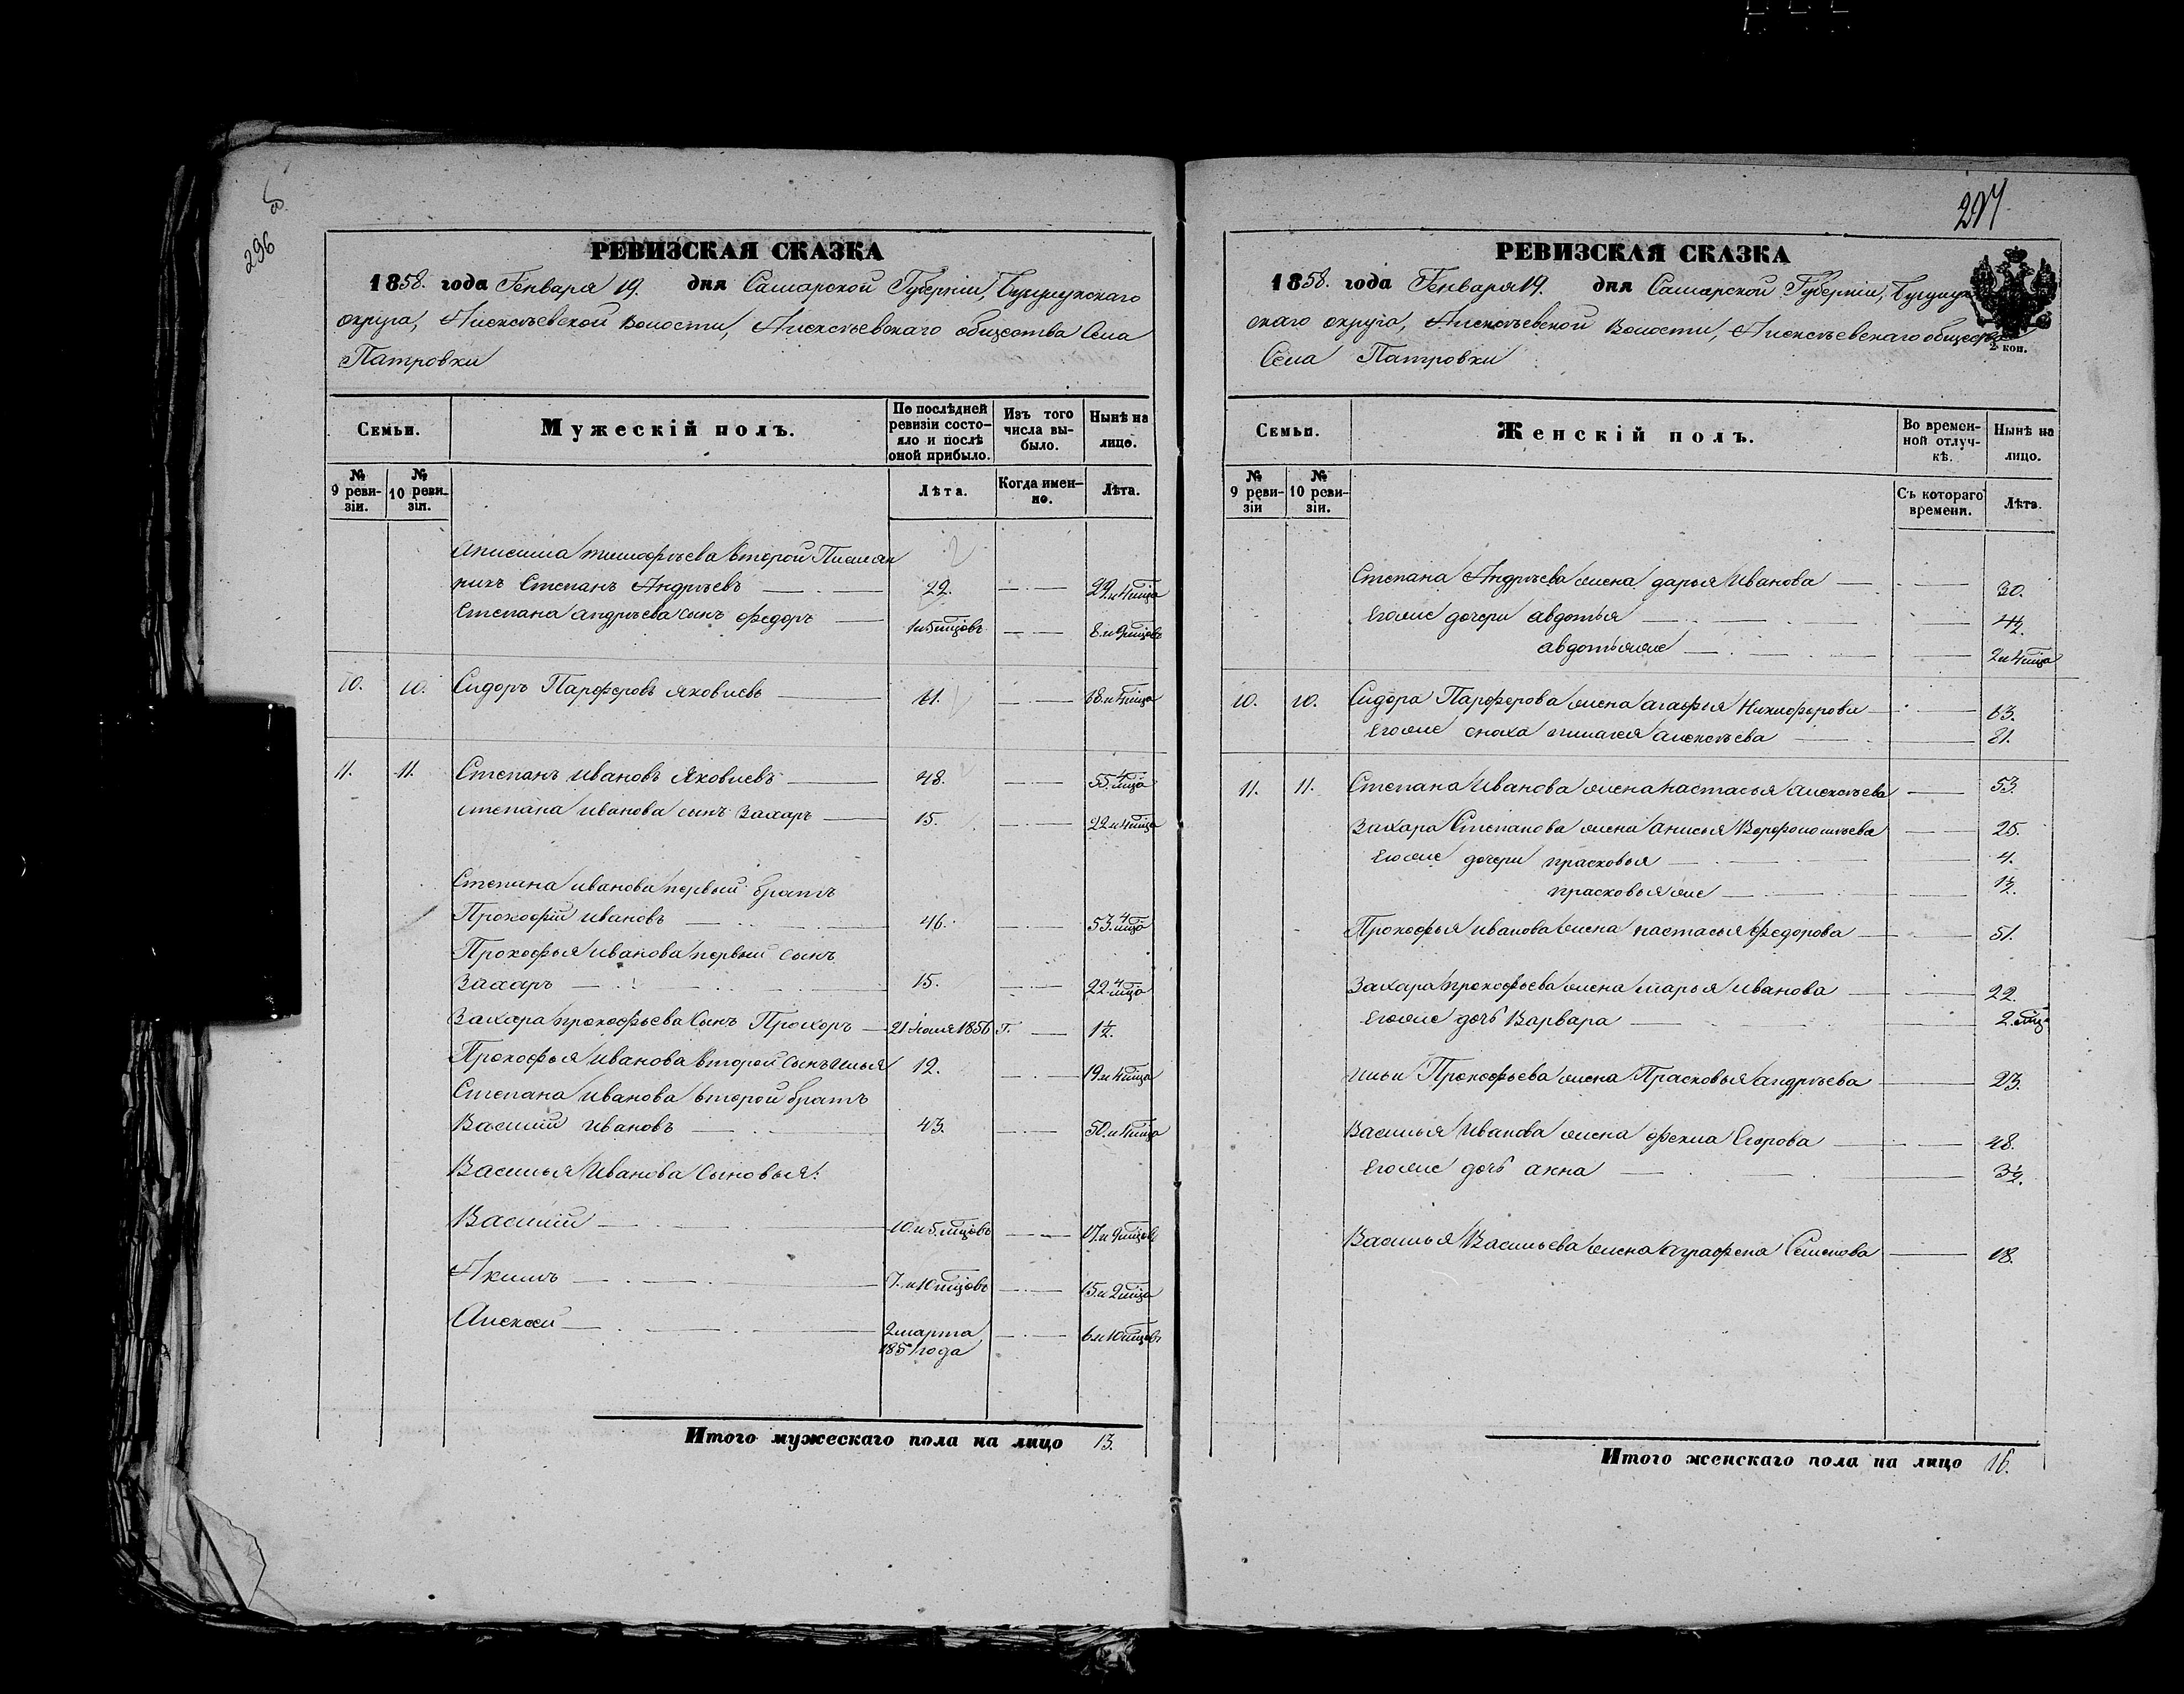 296
РЕВИЗСКАЯ СКАЗКА
1858. года Генваря 19. дня Самарской Губерніи, Бузулукскаго
округа, Алексѣевской Волости, Алексѣевскаго общества Села
Патровки
Семьи.
Мужескій полъ.
По послѣдней ревизіи состояло и послѣ оной прибыло.
Изъ того числа выбыло.
Нынѣ на лицо.
№ 9 ревизіи.
№ 10 ревизіи.
Лѣта.
Когда именно.
Лѣта.
Анисима Тимофѣева второй Племян
никъ Степанъ Андрѣевъ 22. 29 и 4 мца
Степана андрѣева сынъ Федоръ 1 и 5 мцовъ 8 и 9 мцовъ
10. 10. Сидоръ Парферовъ Яковлевъ 61. 68 и 4 мца
11. 11. Степанъ Ивановъ Яковлевъ 48. 55. 4 мца
Степана Иванова сынъ Захаръ 15. 22 и 4 мца
Степана Иванова первый братъ
Прокофій Ивановъ 46. 53. 4 мца
Прокофья Иванова первый сынъ
Захаръ 15. 22. 4 мца
Захара Прокофьева сынъ Прохоръ 21 Июля 1856 г. 1½.
Прокофья Иванова второй сынъ Илья 12. 19 и 4 мца
Степана Иванова второй братъ
Василий Ивановъ 43. 50. и 4 мца
Василья Иванова Сыновья:
Василий 10. и 5. мцовъ 17. и 9 мцовъ
Акимъ 7. и 10 мцовъ 15. и 2 мца
Алексей 2 марта 6 и 10 мцовъ
1851 года
Итого мужескаго пола на лицо 13.
297
РЕВИЗСКАЯ СКАЗКА
1858. года Генваря 19. дня Самарской Губерніи, Бузулук
скаго округа, Алексѣевской Волости, Алексѣевскаго общества
Села Патровки
2 коп.
Семьи.
Женскій полъ.
Во временной отлучкѣ.
Нынѣ на лицо.
№ 9 ревизіи
№ 10 ревизіи.
Съ котораго времени.
Лѣта.
Степана Андрѣева жена дарья Иванова 30.
Его же дочери авдотья 4½.
авдотья же 2 и 4 мца
10. 10. Сидора Парферова жена агафья Никифорова 63.
Его же сноха алексѣева
11. 11. Степана Иванова жена настасья алексѣева 53
Захара Степанова жена анисья 25.
Его же дочери прасковья 4.
прасковья же 1½.
Прокофья Иванова жена настасья Федорова 51.
Захара Прокофьева жена марья Иванова 22.
Его же дочь Варвара 2. мца
Ильи Прокофьева жена Прасковья андрѣева 23.
Василья Иванова жена фекла Егорова 48.
Его же дочь анна 3½.
Василья Васильева жена аграфена Семенова 18.
Итого женскаго пола на лицо 16.